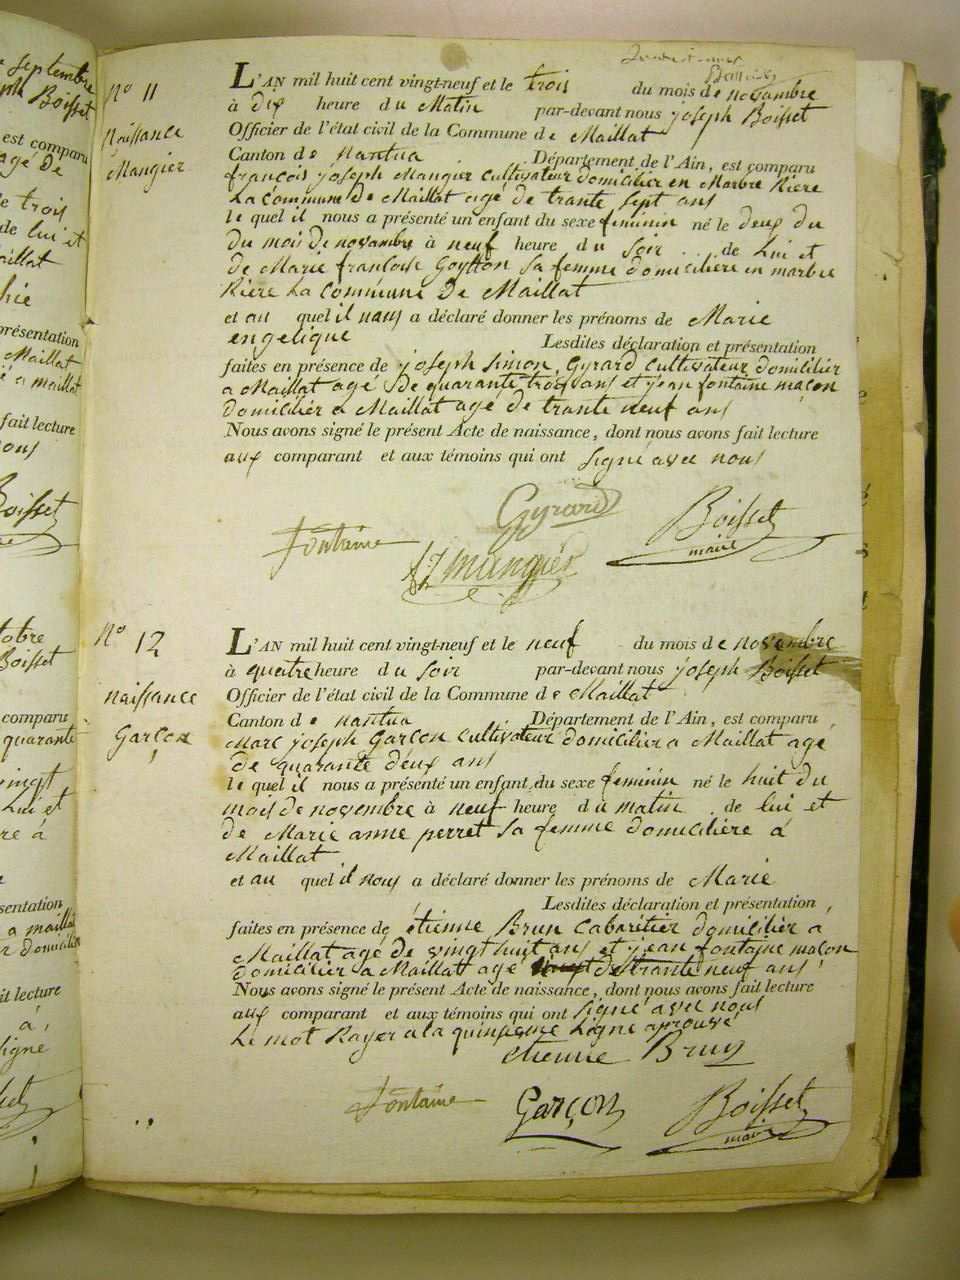 septembre
Boisset
est comparu
agé de
trois
de lui et
maillat
présentation
Maillat
a maillat
fait lecture
nous
Boisset
No 11
Naissance
Mangier
L'AN mil huit cent vingt-neuf et le trois du mois de novembre
à dix heure du Matin par-devant nous joseph Boisset
Officier de l'état civil de la Commune de Maillat
Canton de Nantua Département de l'Ain, est comparu
françois joseph Mangier cultivateur domicilier en Marbre Riere
La commune De Maillat agé de trante sept ans
le quel il nous a présenté un enfant du sexe feminin né le deux du
du mois de novambre à neuf heure du soir de Lui et
de Marie francoise Goytton sa femme domiciliere en marbre
Riere La commune De Maillat
et au quel il nous a déclaré donner les prénoms de Marie
engelique Lesdites déclaration et présentation
faites en présence de joseph simon Gyrard cultivateur domicilier
a Maillat agé De quarante trois ans et jean fontaine maçon
domicilier a Maillat agé de trante neuf ans
Nous avons signé le présent Acte de naissance, dont nous avons fait lecture
aux comparant et aux témoins qui ont signé avec nous
Gyrard
Boisset
maire
fontaine
fJ mangier
octobre
Boisset
comparu
quarante
vingt
Lui et
présentation
a maillat
fait lecture
ligne
No 12
naissance
Garçon
L'AN mil huit cent vingt-neuf et le neuf du mois de novembre
à quatre heure du soir par-devant nous joseph Boisset
Officier de l'état civil de la Commune de Maillat
Canton de nantua Département de l'Ain, est comparu
Marc joseph Garçon cultivateur domicilier a Maillat agé
de quarante deux ans
le quel il nous a présenté un enfant du sexe feminin né le huit du
mois de novembre à neuf heure du matin de lui et
de Marie anne perret sa femme domicilière à
Maillat
et au quel il nous a déclaré donner les prénoms de Marie
Lesdites déclaration et présentation
faites en présence de étienne Brun cabarétier domicilier a
Maillat agé de vingt huit ans et jean fontaine maçon
domicilier a Maillat agé De trante neuf ans
Nous avons signé le présent Acte de naissance, dont nous avons fait lecture
aux comparant et aux témoins qui ont signé avec nous
Le mot Rayer a la quinzieme Ligne aprouvé
etienne Brun
fontaine
Garçon
Boisset
maire